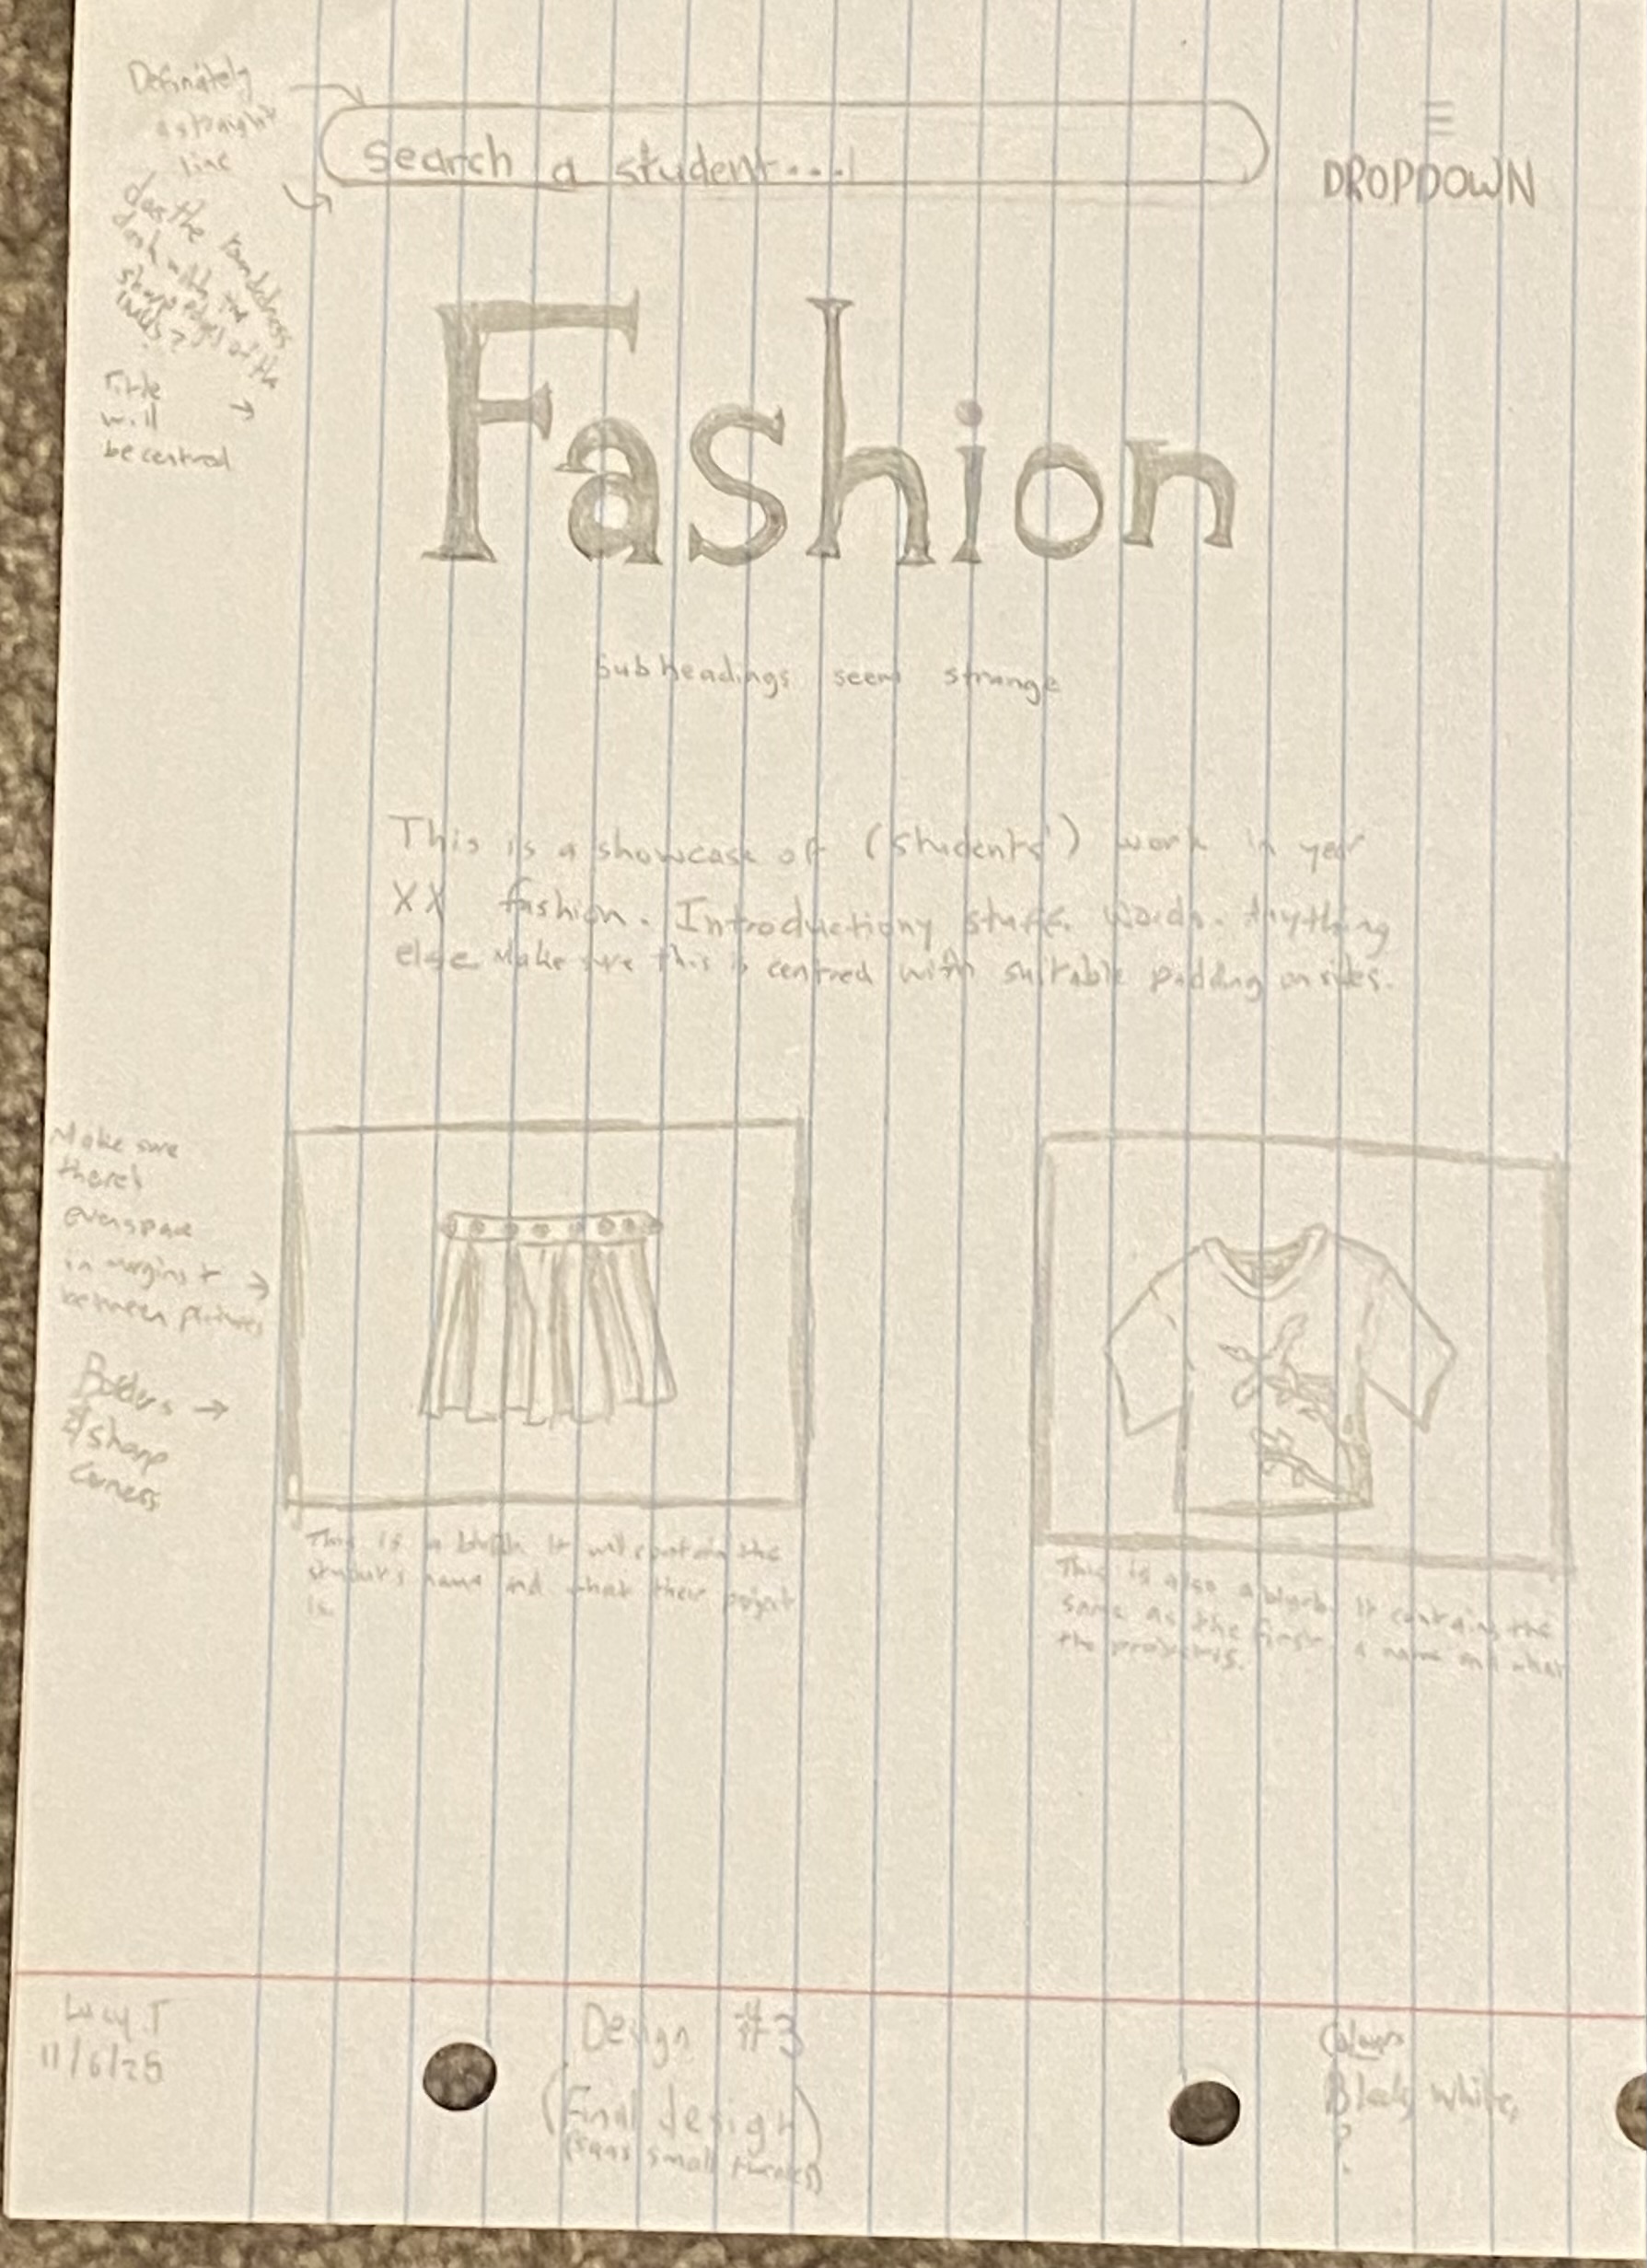 Definitely
a straight
line
search a student...
DROPDOWN
does the roundedness
clash with the
sharp edges of the
Title
will
be centred
Fashion
Subheadings seem strange
This is a showcase of (students') work in year
XX fashion. Introductiony stuff. Words. Anything
else. Make sure this is centred with suitable padding on sides.
Make sure
there's
even space
in margins +
between pictures
Borders
sharp
corners
This is a blurb. It will contain the
student's name and what their project
is.
This is also a blurb. It contains the
same as the first, a name and what
the project is.
Lucy.T
11/6/25
Design #3
(Final design)
(sans small tweaks)
Colours
Black, white,
?